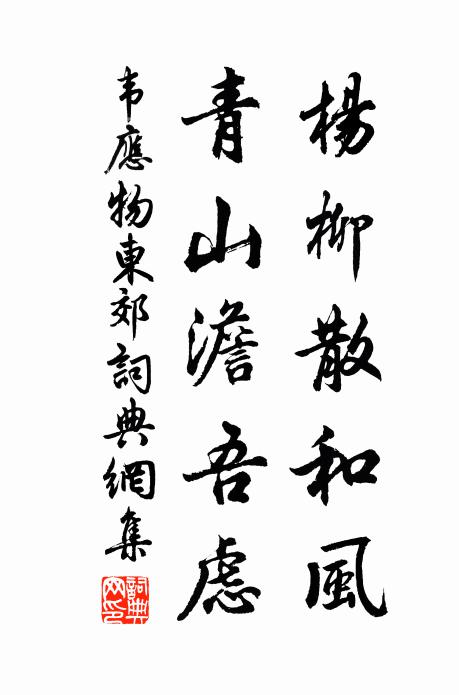 楊柳散和風
青山澹吾慮
韦應物東郊詞典網集
詞典網印